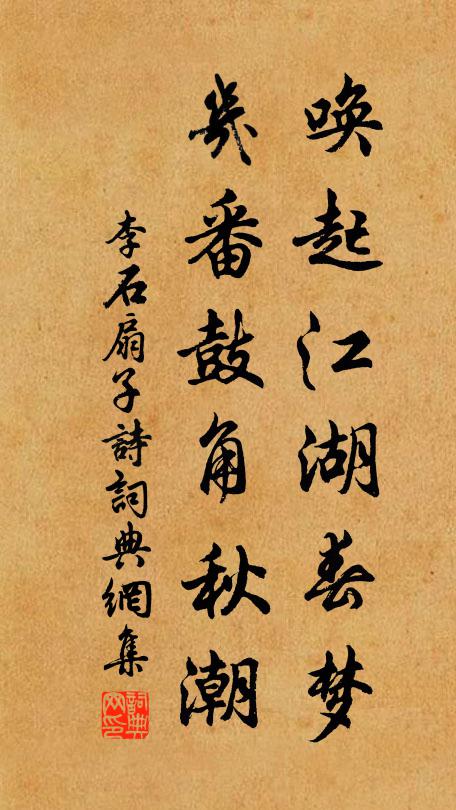 唤起江湖春梦
几番鼓角秋潮
李石扇子詩詞典網集
詞典网印